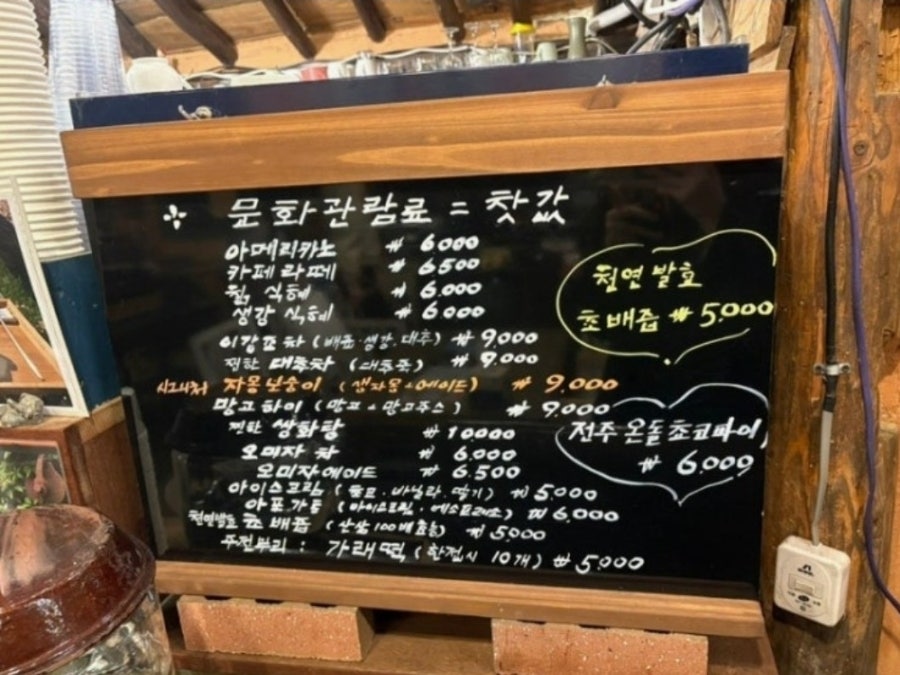 문화관람료 = 찻값
아메리카노 ₩ 6.000
카페라떼 ₩ 6.500
식혜 ₩ 6.000
생강 식혜 ₩ 6.000
이강고차 (배즙·생강·대추) ₩ 9,000
찐한 대추차 ₩ 9.000
시그니처 자몽난숭이 (생자몽+에이드) ₩ 9.000
망고하이 (망고+망고주스) ₩ 9.000
찐한 쌍화탕 ₩ 10.000
오미자 차 ₩ 6.000
오미자에이드 ₩ 6.500
아이스크림 (초코·바닐라·딸기) ₩ 5.000
아포가토 (아이스크림·에스프레소) ₩ 6.000
천연발효 초배즙 ₩ 5.000
주전부리 : 가래떡 (한접시 10개) ₩ 5.000
천연발효
초배즙 ₩ 5.000
전주 온돌초코파이
₩ 6.000